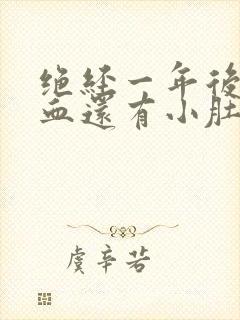 绝経一年後
血還有小肚
虞辛若